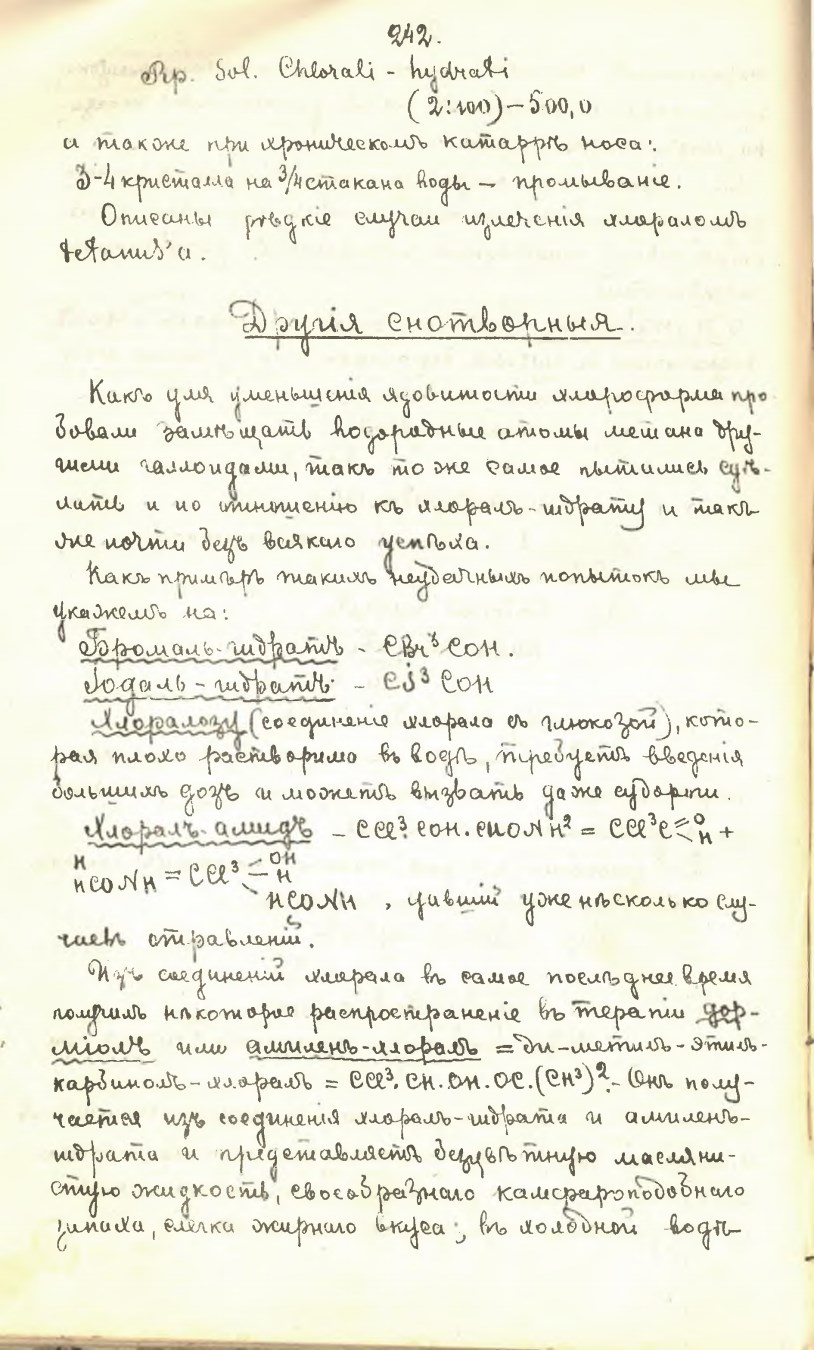 242.
Rp. Sol. Chlorali - hydrati
(2:100) — 500,0
а также при хроническомъ катаррѣ носа:
3-4 кристалла на 3/4 стакана воды — промываніе.
Описаны рѣдкіе случаи излеченія хлораломъ
tetanus'а.
Другія снотворныя.
Какъ для уменьшенія ядовитости хлороформа про
бовали замѣщать водородные атомы метана дру-
гими галлоидами, такъ то же самое пытались сдѣ-
лать и по отношенію къ хлоралъ-гидрату и такъ
же почти безъ всякаго успѣха.
Какъ примѣръ такихъ неудачныхъ попытокъ мы
укажемъ на:
Бромаль-гидратъ - CBr³COH.
Іодаль-гидратъ - CJ³COH
Хлоралозу (соединеніе хлорала съ глюкозой), кото-
рая плохо растворима въ водѣ, требуетъ введенія
большихъ дозъ и можетъ вызвать даже судороги.
Хлоралъ-амидъ - CCl³.COH.CHONH² = CCl³C=O H +
H HCONH = CCl³ - OH H
HCONH, давшій уже нѣсколько слу-
чаевъ отравленій.
Изъ соединеній хлорала въ самое послѣднее время
получилъ нѣкоторое распространеніе въ терапіи дор-
міолъ или амиленъ-хлоралъ = ди-метилъ-этилъ-
карбинолъ-хлоралъ = CCl³.CH.OH.OC.(CH³)². - Онъ полу-
чается изъ соединенія хлоралъ-гидрата и амиленъ-
гидрата и представляетъ безцвѣтную масляни-
стую жидкость, своеобразнаго камфароподобнаго
запаха, слегка жирнаго вкуса; въ холодной водѣ